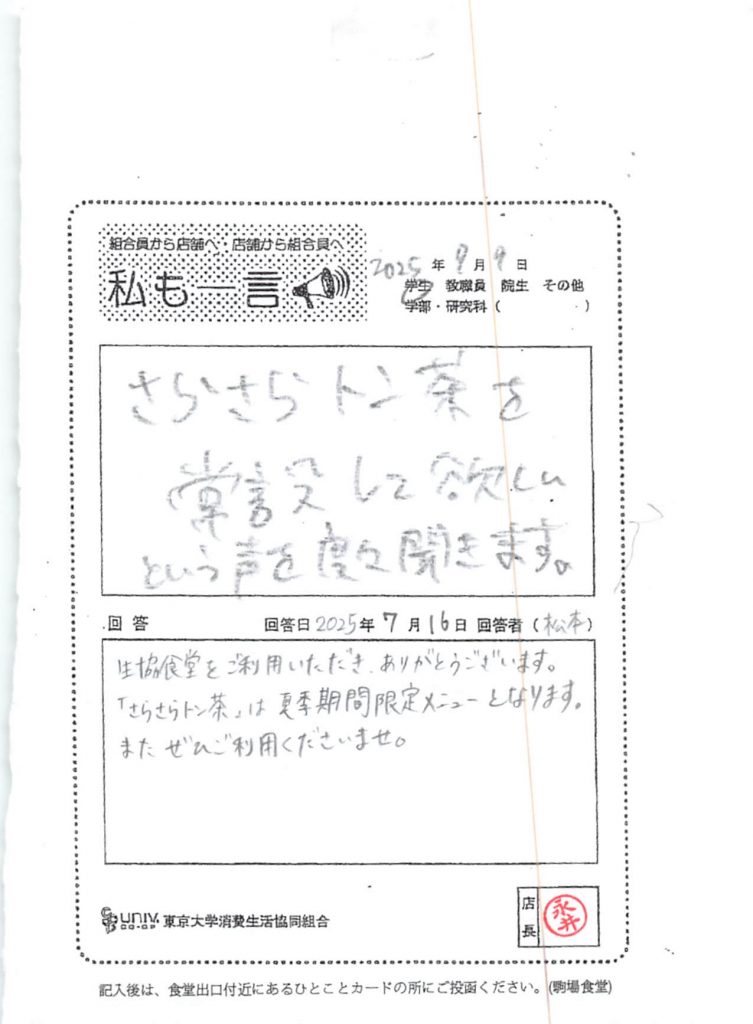 組合員から店舗へ・店舗から組合員へ
私も一言
2025年 9月 9日
学生 教職員 院生 その他
学部・研究科（ ）
さらさらトン茶を
常設して欲しい
という声を度々聞きます。
回答 回答日2025年7月16日 回答者（松本）
生協食堂をご利用いただき、ありがとうございます。
「さらさらトン茶」は夏季期間限定メニューとなります。
またぜひご利用くださいませ。
UNIV. CO-OP 東京大学消費生活協同組合
店長 永井
記入後は、食堂出口付近にあるひとことカードの所にご投函ください。(駒場食堂)